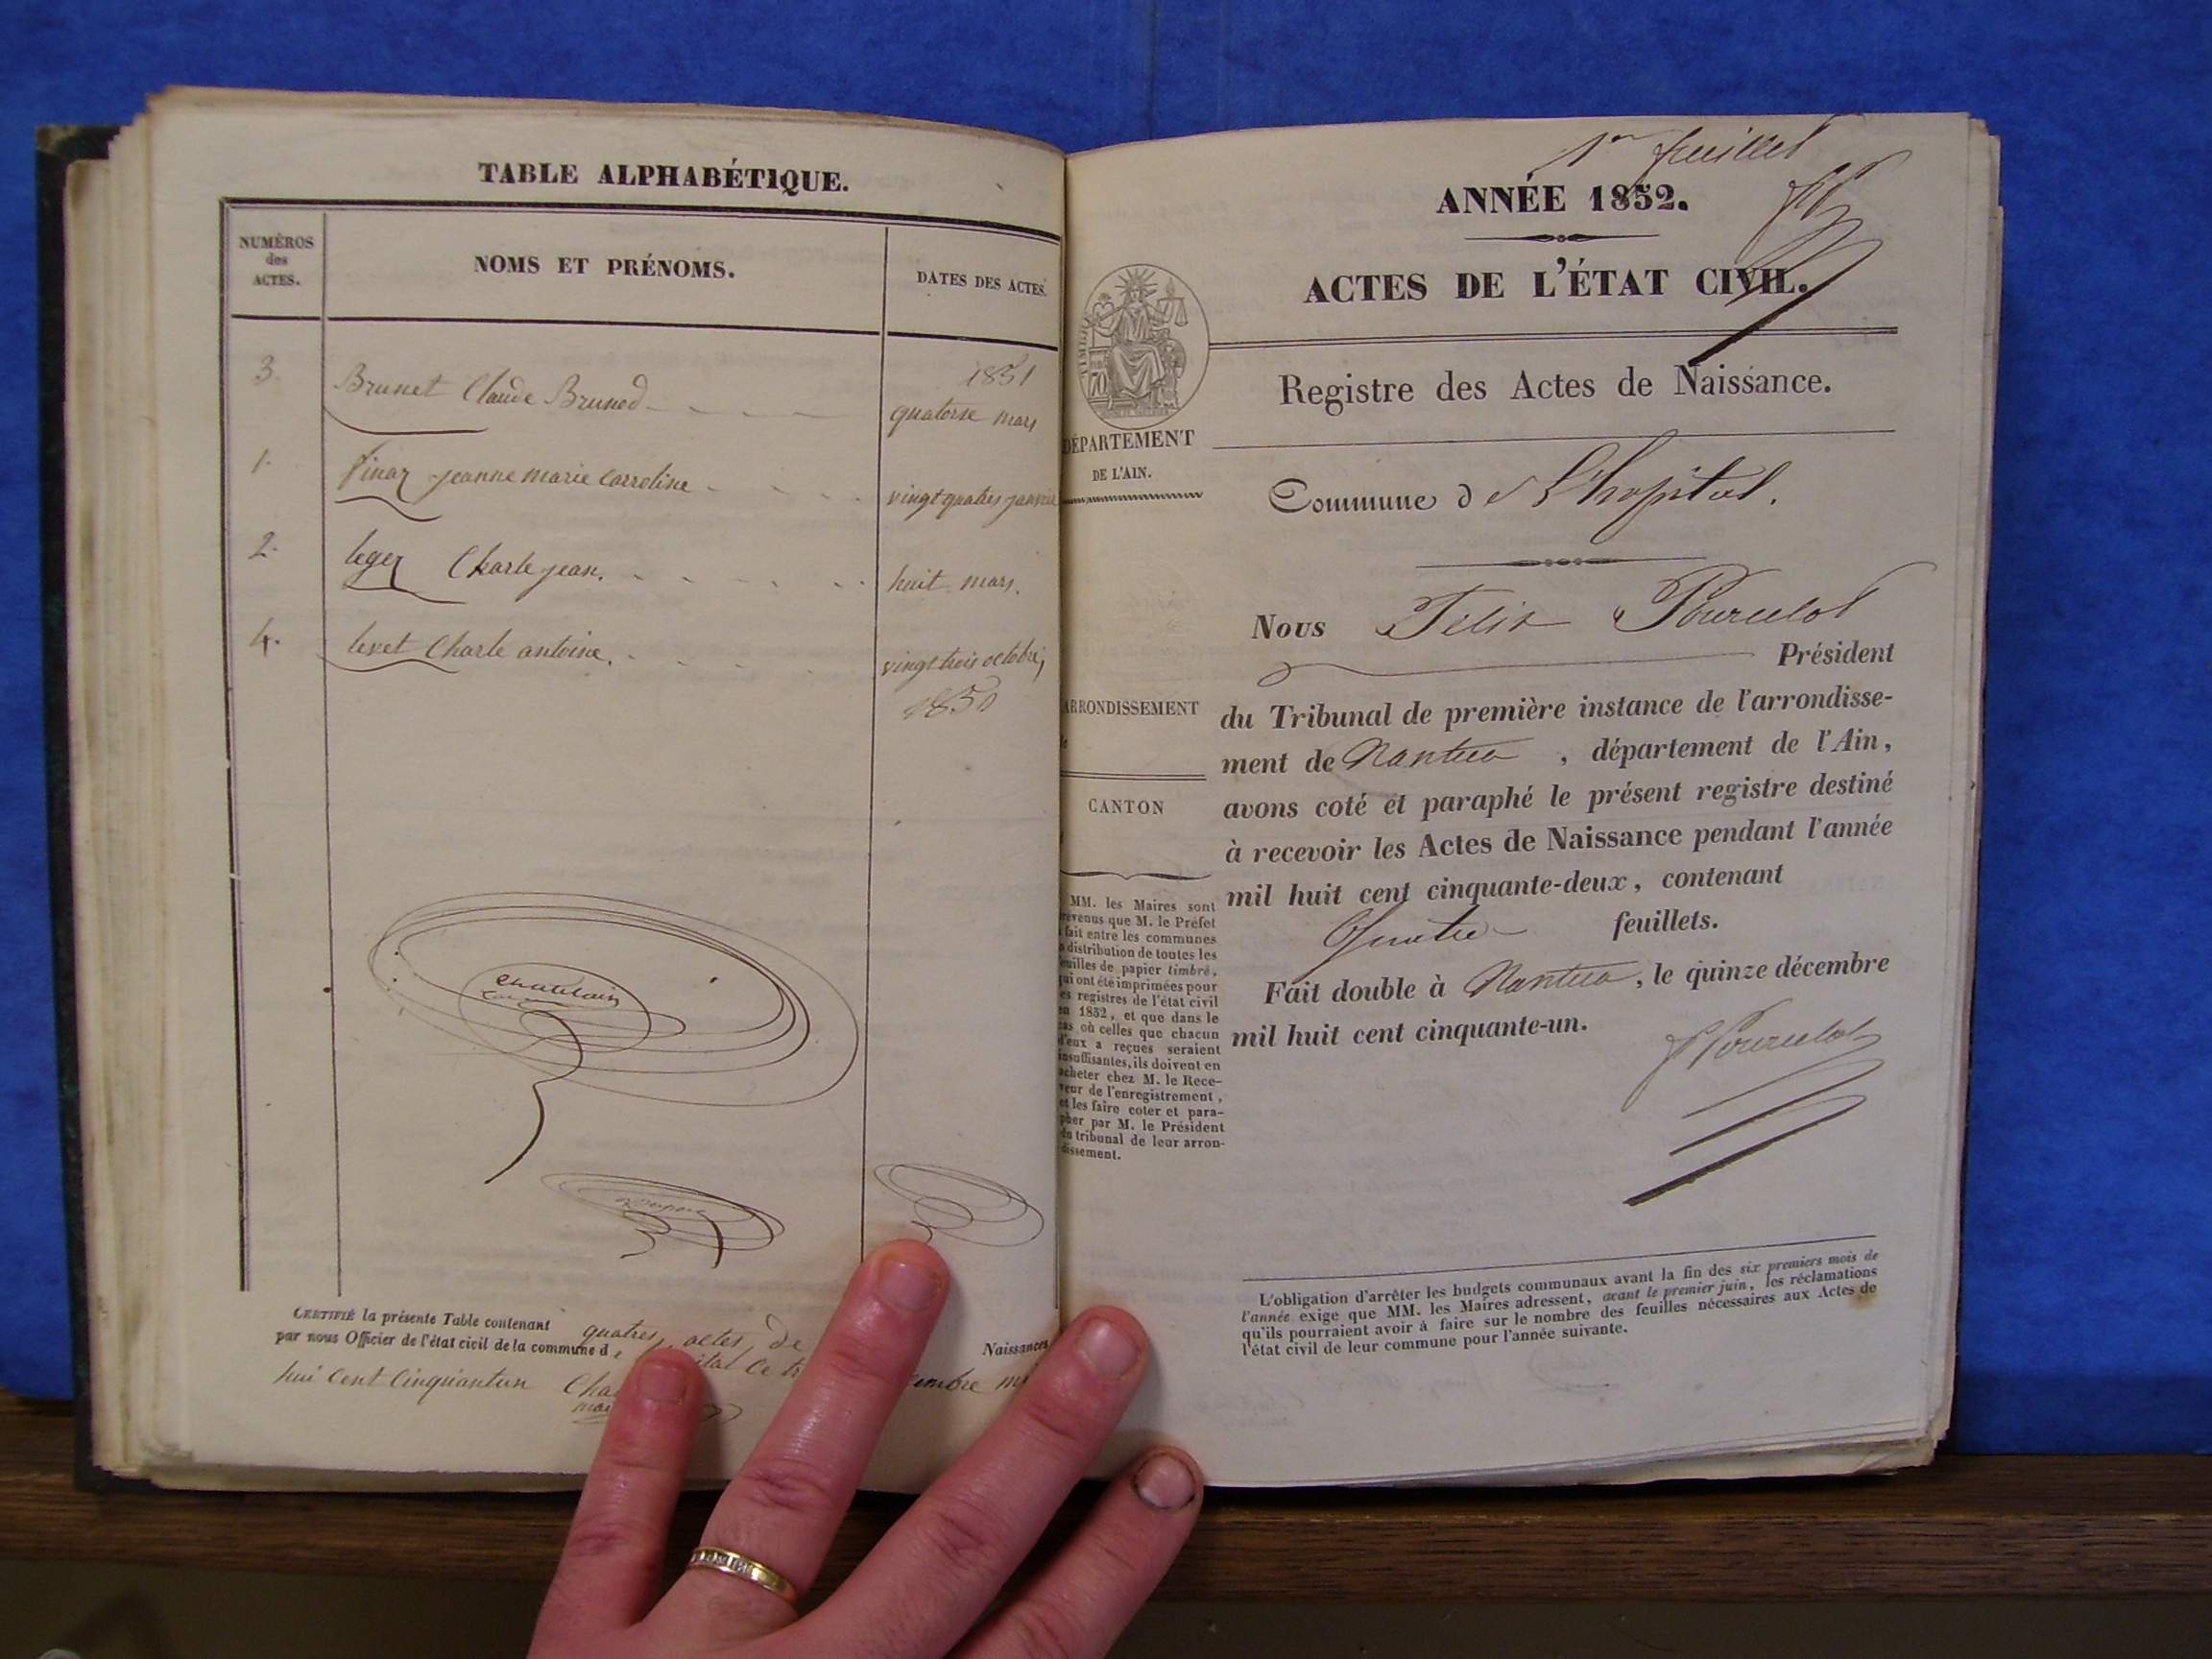 TABLE ALPHABÉTIQUE.
NUMÉROS
des
ACTES.
NOMS ET PRÉNOMS.
DATES DES ACTES.
1851
3. Brunet Claude Bruned
quatorse mars
1. finaz jeanne marie Carroline
vingt quatres janvier
2. leger Charle jean.
huit mars.
4. levet Charle antoine.
vingt trois octobre
1851
Chatelain
CERTIFIÉ la présente Table contenant quatres actes de Naissances
par nous Officier de l'état civil de la commune d
hui Cent Cinquantun
1er feuillet
ANNÉE 1852.
ACTES DE L'ÉTAT CIVIL.
Registre des Actes de Naissance.
DÉPARTEMENT
DE L'AIN.
Commune de L'hopital.
Nous Felix Pourcelot
Président
ARRONDISSEMENT
du Tribunal de première instance de l'arrondisse-
ment de Nantua, département de l'Ain,
avons coté et paraphé le présent registre destiné
CANTON
à recevoir les Actes de Naissance pendant l'année
mil huit cent cinquante-deux, contenant
Quatre feuillets.
Fait double à Nantua, le quinze décembre
mil huit cent cinquante-un.
F Pourcelot
MM. les Maires sont
prévenus que M. le Préfet
a fait entre les communes
la distribution de toutes les
feuilles de papier timbré,
qui ont été imprimées pour
les registres de l'état civil
en 1852, et que dans le
cas où celles que chacun
d'eux a reçues seraient
insuffisantes, ils doivent en
acheter chez M. le Rece-
veur de l'enregistrement,
et les faire coter et para-
pher par M. le Président
du tribunal de leur arron-
dissement.
L'obligation d'arrêter les budgets communaux avant la fin des six premiers mois de
l'année exige que MM. les Maires adressent, avant le premier juin, les réclamations
qu'ils pourraient avoir à faire sur le nombre des feuilles nécessaires aux Actes de
l'état civil de leur commune pour l'année suivante.